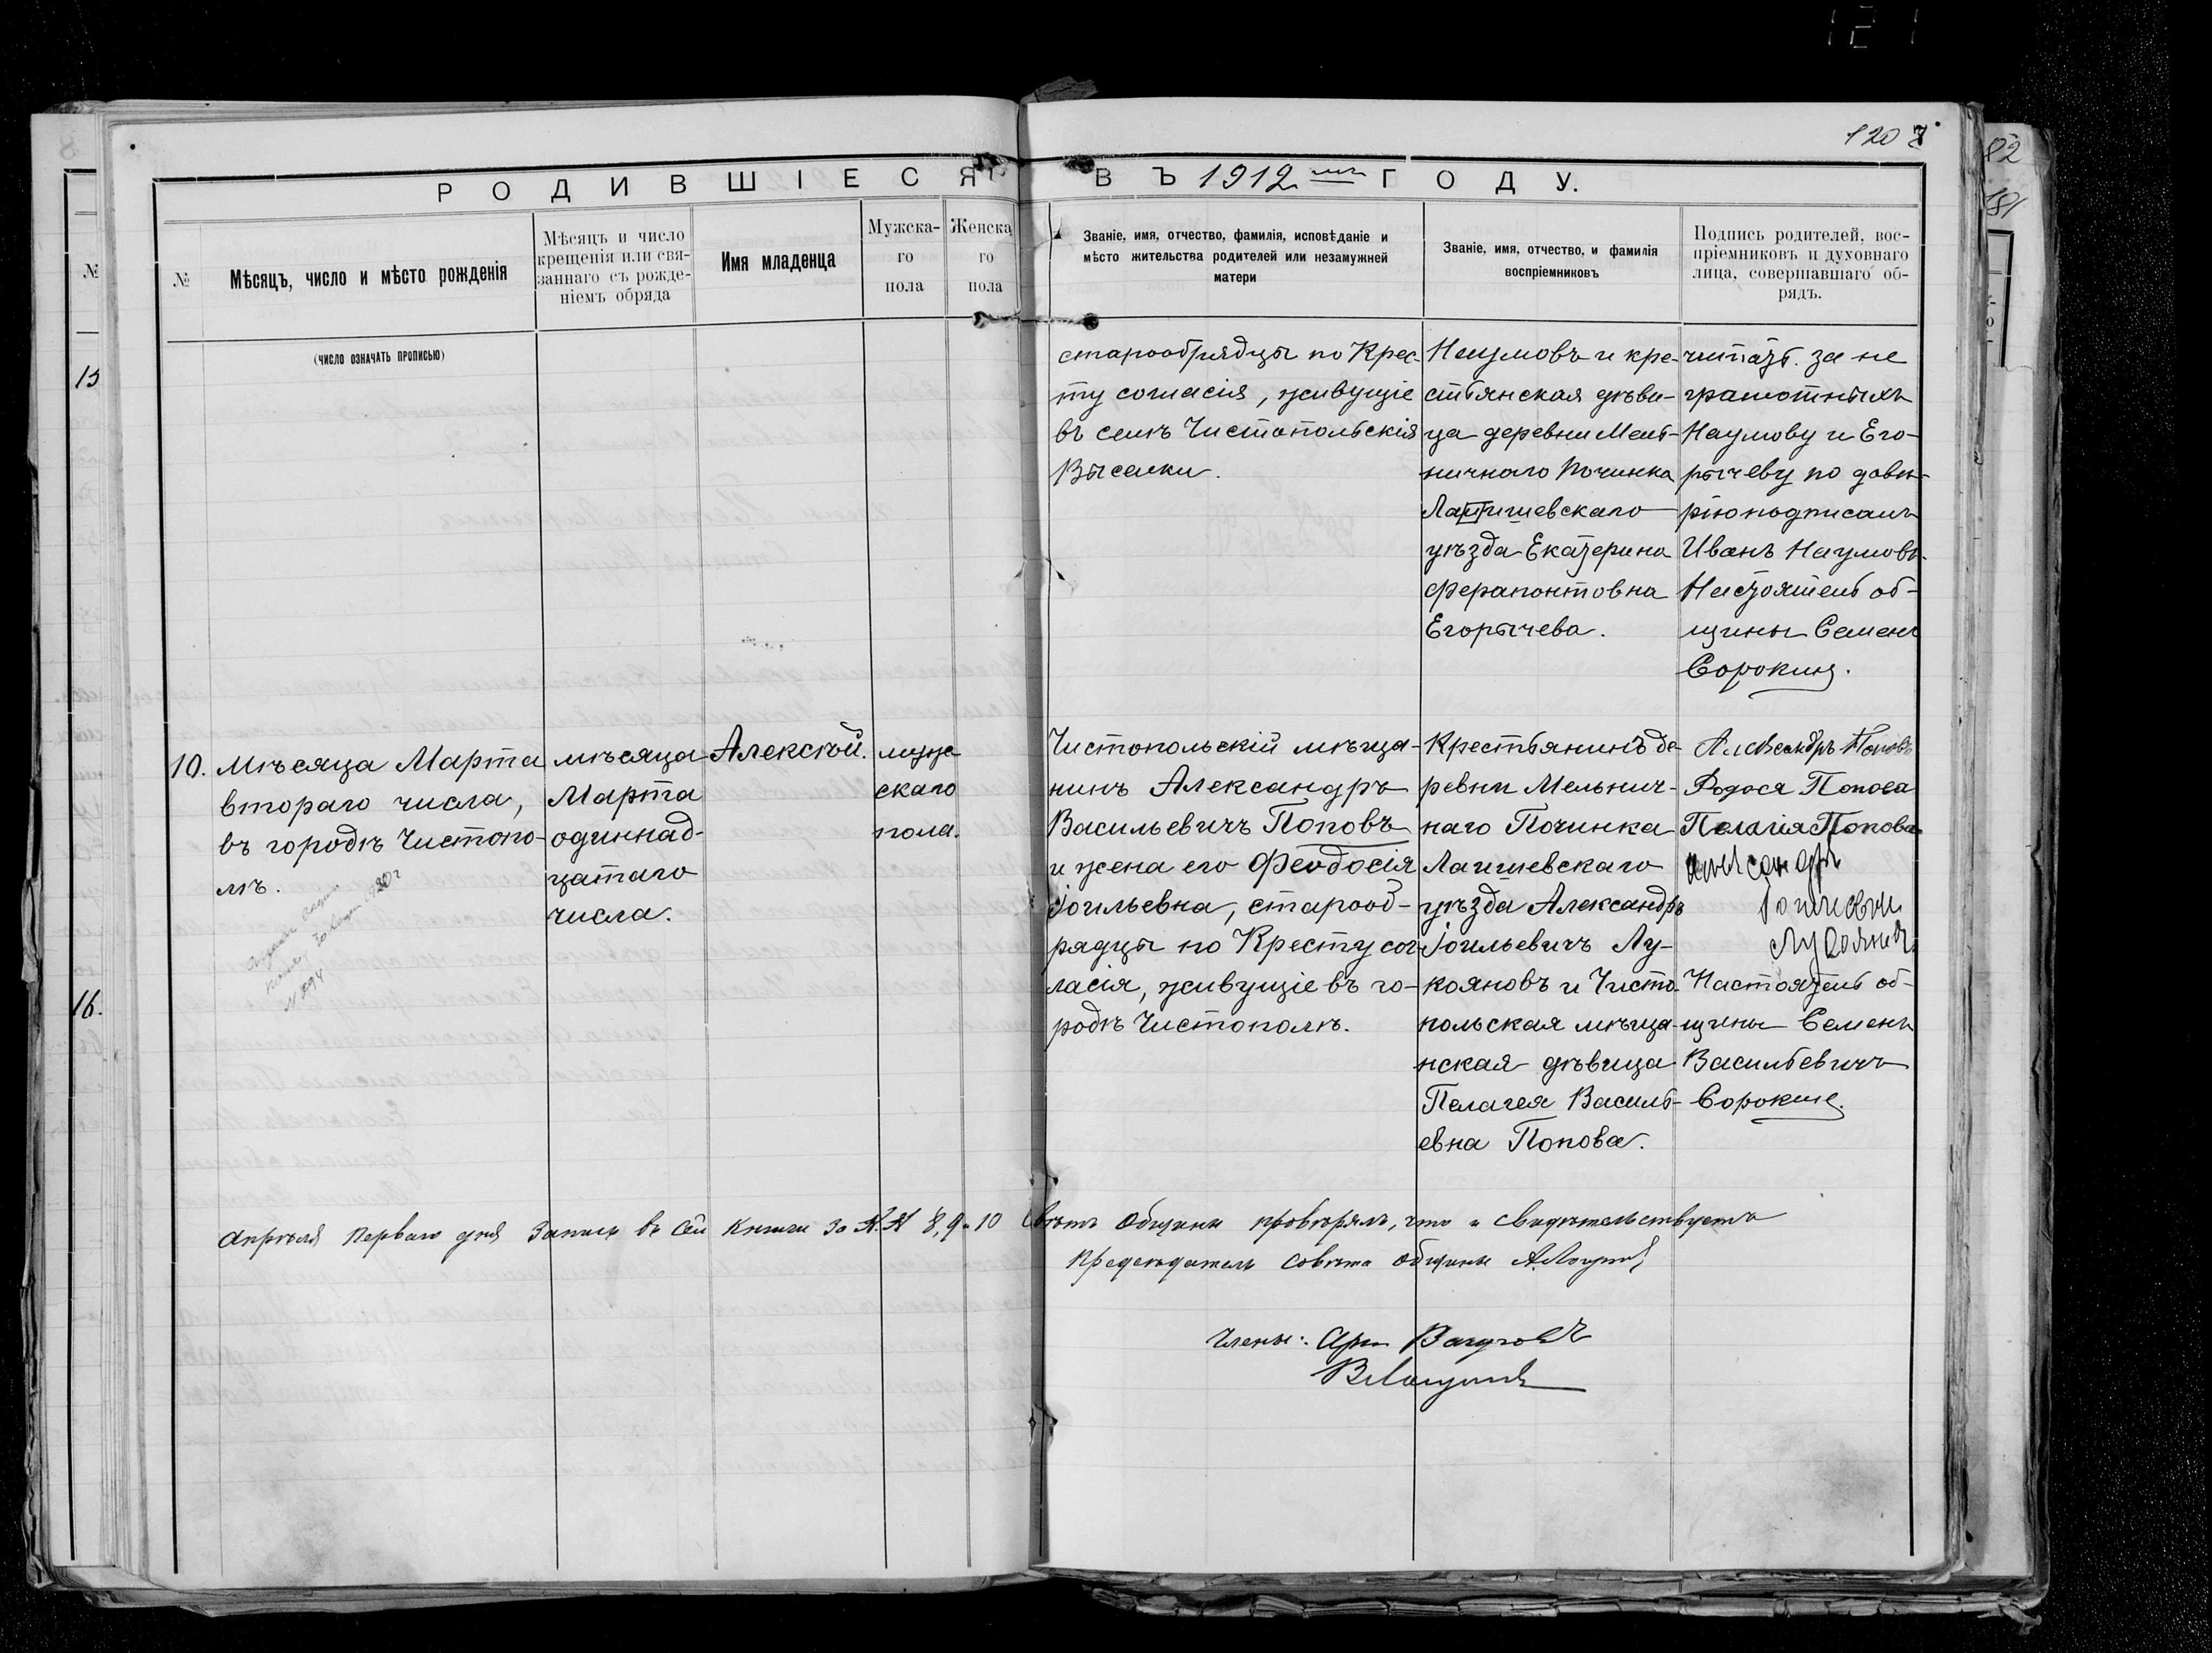 121
120
РОДИВШІЕСЯ ВЪ 1912 мъ ГОДУ.
№
Мѣсяцъ, число и мѣсто рожденія
Мѣсяцъ и число
крещенія или свя-
заннаго съ рожде-
ніемъ обряда
Имя младенца
Мужска-
го
пола
Женска
го
пола
Званіе, имя, отчество, фамилія, исповѣданіе и
мѣсто жительства родителей или незамужней
матери
Званіе, имя, отчество, и фамилія
воспріемниковъ
Подпись родителей, вос-
пріемниковъ и духовнаго
лица, совершавшаго об-
рядъ.
(число означать прописью)
старообрядцы по Крес-
ту согласія, живущіе
въ селѣ Чистопольскія
Выселки.
Наумовъ и кре-
стьянская дѣви-
ца деревни Мель-
ничнаго Починка
Лаишевскаго
уѣзда Екатерина
Ферапонтовна
Егорычева.
читать. за не
грамотныхъ
Наумову и Его-
рычеву по довѣ-
рію подписалъ
Иванъ Наумовъ.
Настоятель об-
щины Семенъ
Сорокинъ.
10.
Мѣсяца Марта
втораго числа,
въ городѣ Чистопо-
лѣ.
мѣсяца
Марта
одиннад-
цатаго
числа.
Алексѣй.
муж-
скаго
пола.
Чистопольскій мѣща-
нинъ Александръ
Васильевичъ Поповъ
и жена его Феодосія
Іоильевна, старооб-
рядцы по Кресту сог-
ласія, живущіе въ го-
родѣ Чистополѣ.
Крестьянинъ де-
ревни Мельнич-
наго Починка
Лаишевскаго
уѣзда Александръ
Іоильевичъ Лу-
кояновъ и Чисто-
польская мѣща-
нская дѣвица
Пелагея Василь-
евна Попова.
Александръ Поповъ
Федося Попова
Пелагія Попова
Настоятель об-
щины Семенъ
Васильевичъ
Сорокинъ.
Апрѣля перваго дня Записи въ сей книги за №№ 8, 9 и 10 Совѣтъ Общины провѣрялъ, что и свидѣтельствуетъ
Предсѣдатель Совѣта Общины
Члены:
15
16.
№
82
181